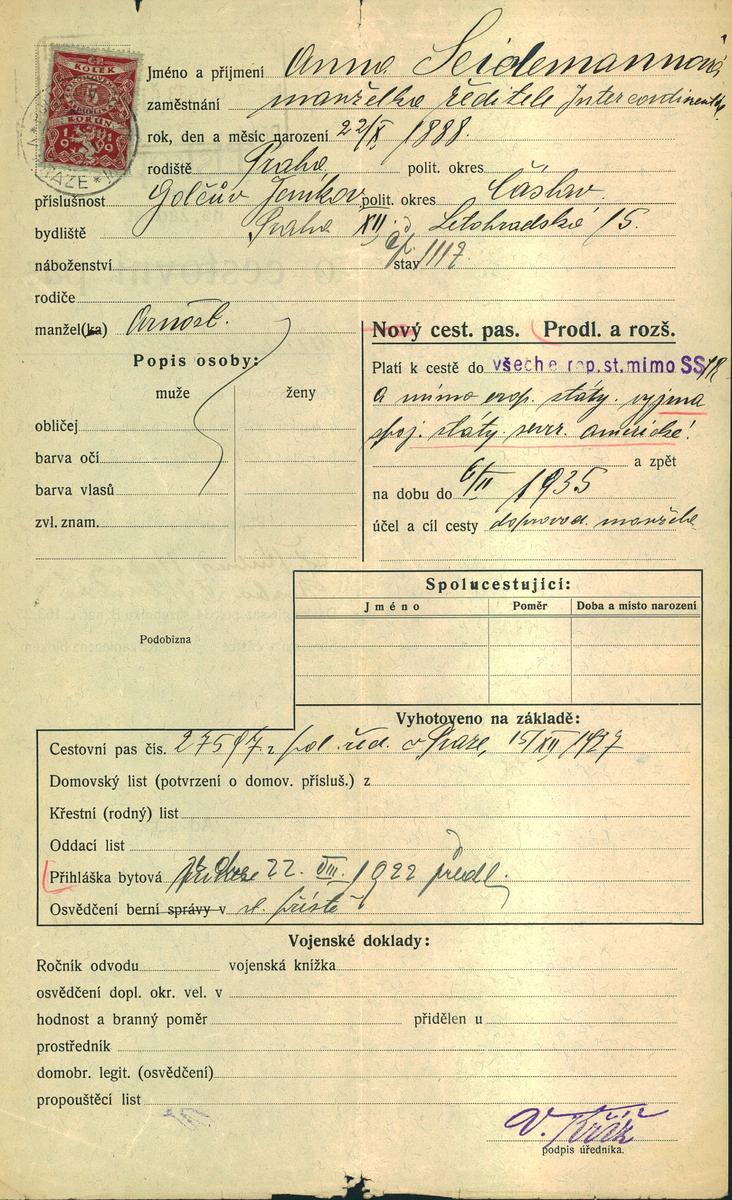 KOLEK
KORUN
1919
Jméno a příjmení Anna Seidemannová
zaměstnání manželka ředitele Intercontinentale
rok, den a měsíc narození 22/X 1888.
rodiště Praha polit. okres
příslušnost Golčův Jeníkov polit. okres Čáslav
bydliště Praha XII. Letohradská 15.
náboženství stav 1117
rodiče
manžel(ka) Arnošt.
Nový cest. pas. Prodl. a rozš.
Popis osoby:
muže ženy
Platí k cestě do všech evrop. st. mimo SSSR
a mimo evrop. státy vyjma
spoj. státy sever. americké!
a zpět
obličej
barva očí
barva vlasů
zvl. znam.
na dobu do 6/II 1935
účel a cíl cesty doprovod manžela
Spolucestující:
Jméno Poměr Doba a místo narození
Podobizna
Vyhotoveno na základě:
Cestovní pas čís. pol. řed. v Praze, 15/XII 1927
Domovský list (potvrzení o domov. přísluš.) z
Křestní (rodný) list
Oddací list
Přihláška bytová 22. VIII. 1922 předl.
Osvědčení berní správy v příště
Vojenské doklady:
Ročník odvodu vojenská knížka
osvědčení dopl. okr. vel. v
hodnost a branný poměr přidělen u
prostředník
domobr. legit. (osvědčení)
propouštěcí list
V. Kříž
podpis úředníka.